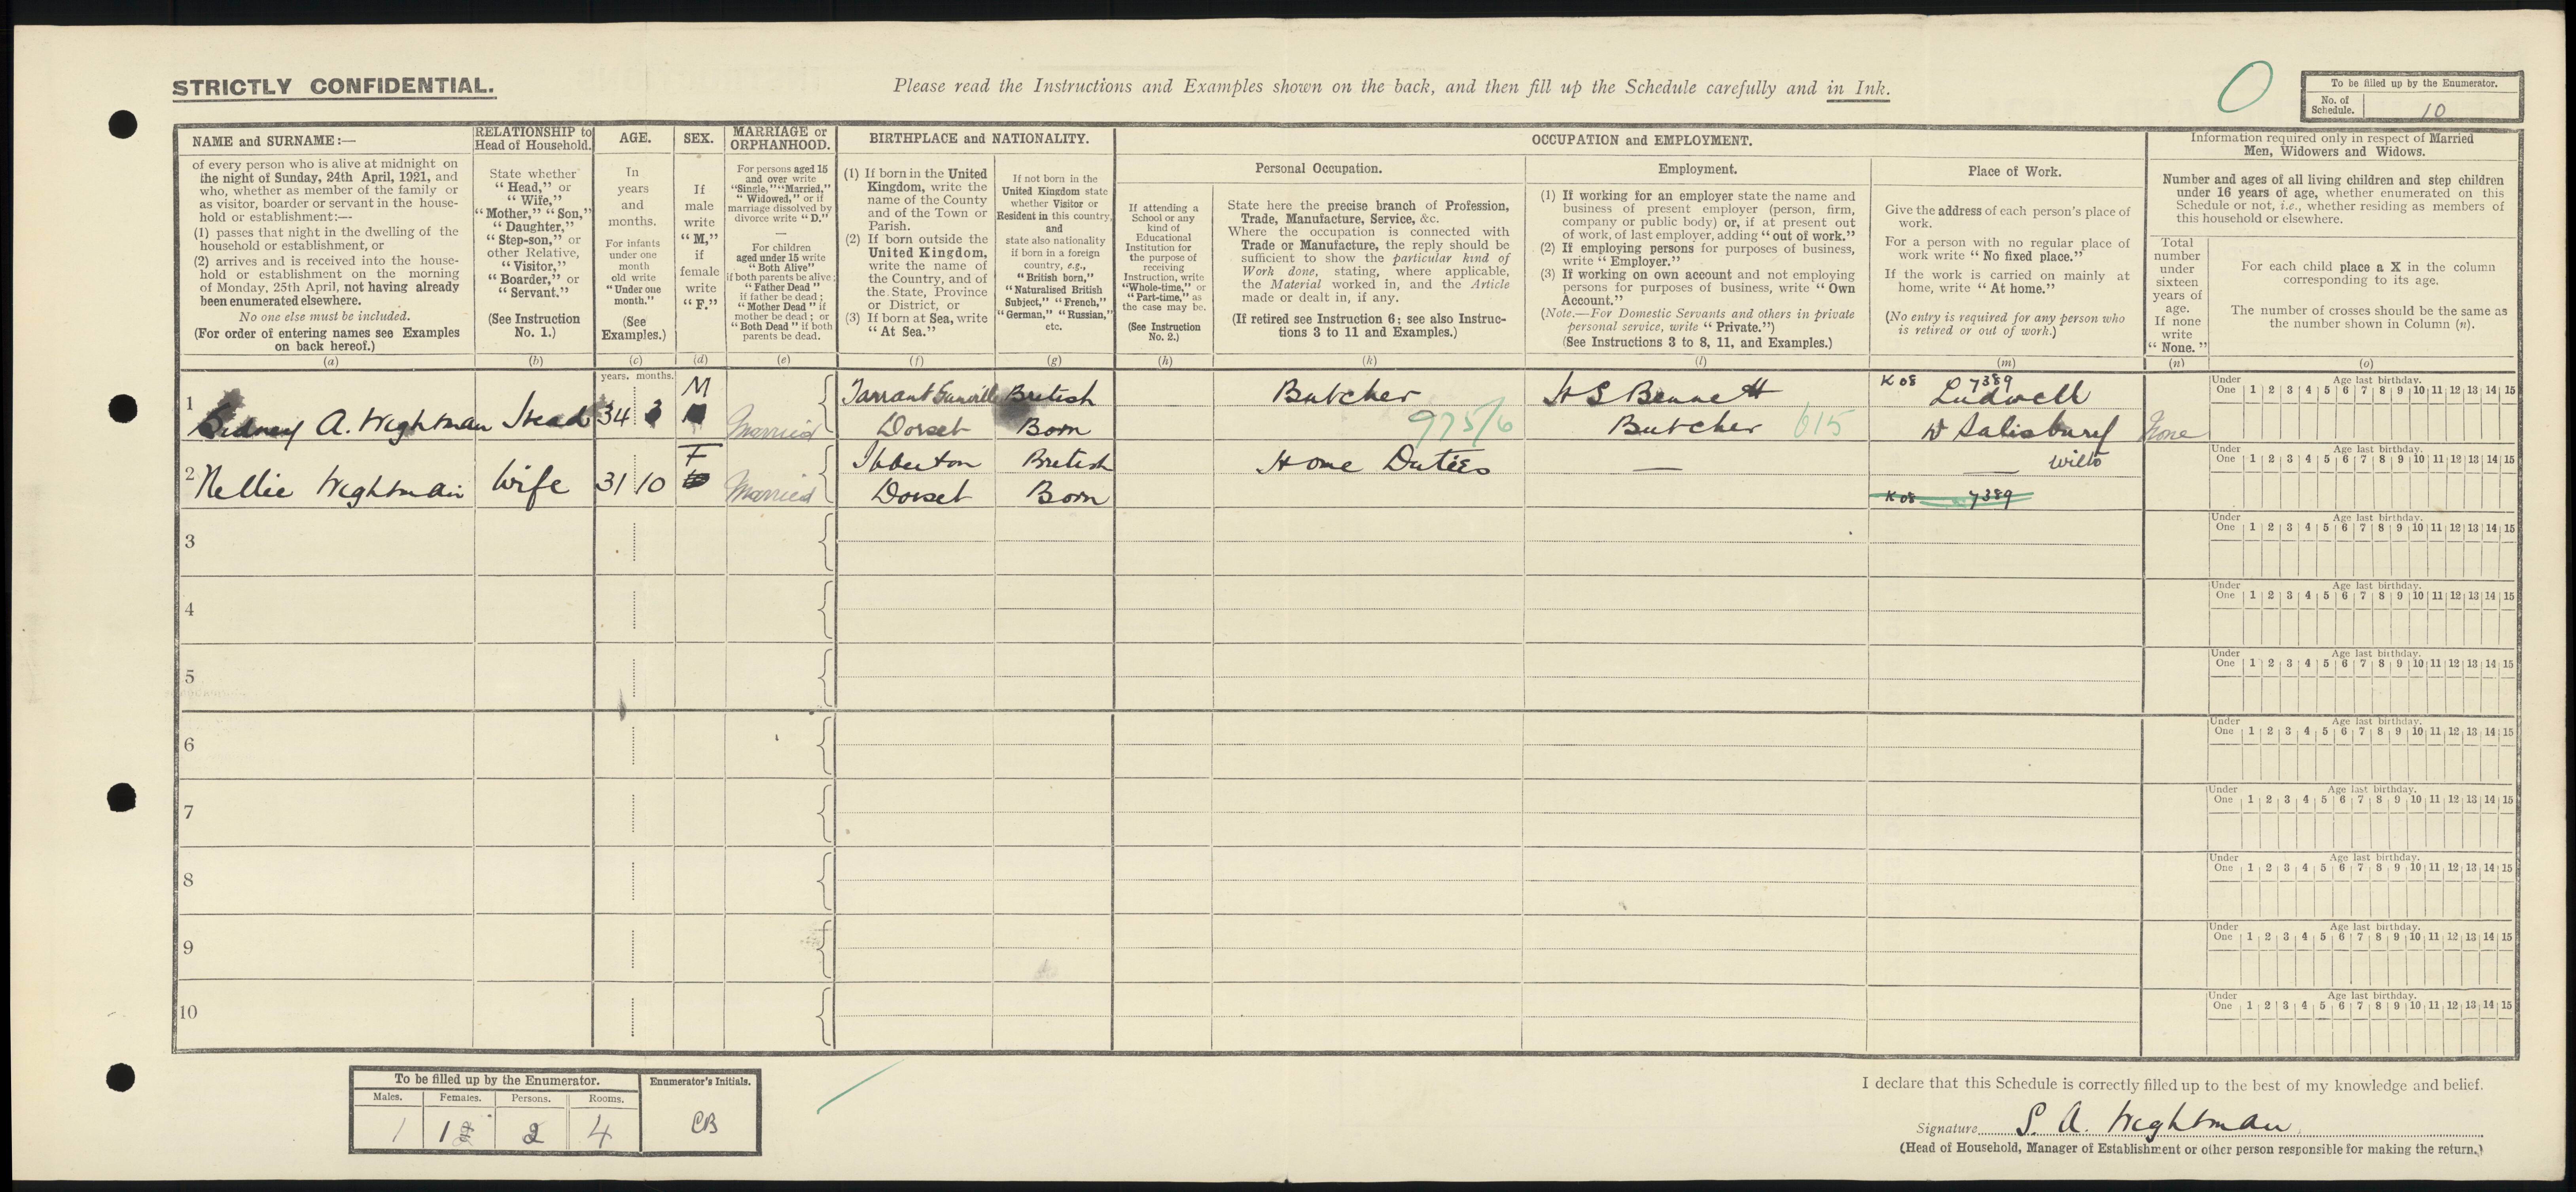 STRICTLY CONFIDENTIAL.
Please read the Instructions and Examples shown on the back, and then fill up the Schedule carefully and in Ink.
0
To be filled up by the Enumerator.
No. of Schedule. 10
NAME and SURNAME:—
of every person who is alive at midnight on
the night of Sunday, 24th April, 1921, and
who, whether as member of the family or
as visitor, boarder or servant in the house-
hold or establishment:—
(1) passes that night in the dwelling of the
household or establishment, or
(2) arrives and is received into the house-
hold or establishment on the morning
of Monday, 25th April, not having already
been enumerated elsewhere.
No one else must be included.
(For order of entering names see Examples
on back hereof.)
(a)
RELATIONSHIP to
Head of Household.
State whether
“Head,” or
“Wife,”
“Mother,” “Son,”
“Daughter,”
“Step-son,” or
other Relative,
“Visitor,”
“Boarder,” or
“Servant.”
(See Instruction
No. 1.)
(b)
AGE.
In
years
and
months.
For infants
under one
month
old write
“Under one
month.”
(See
Examples.)
(c)
SEX.
If
male
write
“M,”
if
female
write
“F.”
(d)
MARRIAGE or
ORPHANHOOD.
For persons aged 15
and over write
“Single,” “Married,”
“Widowed,” or if
marriage dissolved by
divorce write “D.”
—
For children
aged under 15 write
“Both Alive”
if both parents be alive;
“Father Dead”
if father be dead;
“Mother Dead” if
mother be dead; or
“Both Dead” if both
parents be dead.
(e)
BIRTHPLACE and NATIONALITY.
(1) If born in the United
Kingdom, write the
name of the County
and of the Town or
Parish.
(2) If born outside the
United Kingdom,
write the name of
the Country, and of
the State, Province
or District, or
(3) If born at Sea, write
“At Sea.”
(f)
If not born in the
United Kingdom state
whether Visitor or
Resident in this country,
and
state also nationality
if born in a foreign
country, e.g.,
“British born,”
“Naturalised British
Subject,” “French,”
“German,” “Russian,”
etc.
(g)
OCCUPATION and EMPLOYMENT.
If attending a
School or any
kind of
Educational
Institution for
the purpose of
receiving
Instruction, write
“Whole-time,” or
“Part-time,” as
the case may be.
(See Instruction
No. 2.)
(h)
Personal Occupation.
State here the precise branch of Profession,
Trade, Manufacture, Service, &c.
Where the occupation is connected with
Trade or Manufacture, the reply should be
sufficient to show the particular kind of
Work done, stating, where applicable,
the Material worked in, and the Article
made or dealt in, if any.
(If retired see Instruction 6; see also Instruc-
tions 3 to 11 and Examples.)
(k)
Employment.
(1) If working for an employer state the name and
business of present employer (person, firm,
company or public body) or, if at present out
of work, of last employer, adding “out of work.”
(2) If employing persons for purposes of business,
write “Employer.”
(3) If working on own account and not employing
persons for purposes of business, write “Own
Account.”
(Note.—For Domestic Servants and others in private
personal service, write “Private.”)
(See Instructions 3 to 8, 11, and Examples.)
(l)
Place of Work.
Give the address of each person's place of
work.
For a person with no regular place of
work write “No fixed place.”
If the work is carried on mainly at
home, write “At home.”
(No entry is required for any person who
is retired or out of work.)
(m)
Information required only in respect of Married
Men, Widowers and Widows.
Number and ages of all living children and step children
under 16 years of age, whether enumerated on this
Schedule or not, i.e., whether residing as members of
this household or elsewhere.
Total
number
under
sixteen
years of
age.
If none
write
“None.”
(n)
For each child place a X in the column
corresponding to its age.
The number of crosses should be the same as
the number shown in Column (n).
(o)
years. months.
1 Sidney A. Wightman Head 34 3 M Married Tarrant Gunville Dorset British Born Butcher 975/6 H S Bennett Butcher 615 K 08 7389 Ludwell Nr Salisbury Wilts None
Under One Age last birthday. 1 2 3 4 5 6 7 8 9 10 11 12 13 14 15
2 Nellie Wightman Wife 31 10 F Married Ibberton Dorset British Born Home Duties — — K 08 7389
Under One Age last birthday. 1 2 3 4 5 6 7 8 9 10 11 12 13 14 15
3
Under One Age last birthday. 1 2 3 4 5 6 7 8 9 10 11 12 13 14 15
4
Under One Age last birthday. 1 2 3 4 5 6 7 8 9 10 11 12 13 14 15
5
Under One Age last birthday. 1 2 3 4 5 6 7 8 9 10 11 12 13 14 15
6
Under One Age last birthday. 1 2 3 4 5 6 7 8 9 10 11 12 13 14 15
7
Under One Age last birthday. 1 2 3 4 5 6 7 8 9 10 11 12 13 14 15
8
Under One Age last birthday. 1 2 3 4 5 6 7 8 9 10 11 12 13 14 15
9
Under One Age last birthday. 1 2 3 4 5 6 7 8 9 10 11 12 13 14 15
10
Under One Age last birthday. 1 2 3 4 5 6 7 8 9 10 11 12 13 14 15
To be filled up by the Enumerator.
Males. Females. Persons. Rooms.
1 1 2 4
Enumerator's Initials.
CB
I declare that this Schedule is correctly filled up to the best of my knowledge and belief.
Signature S. A. Wightman
(Head of Household, Manager of Establishment or other person responsible for making the return.)